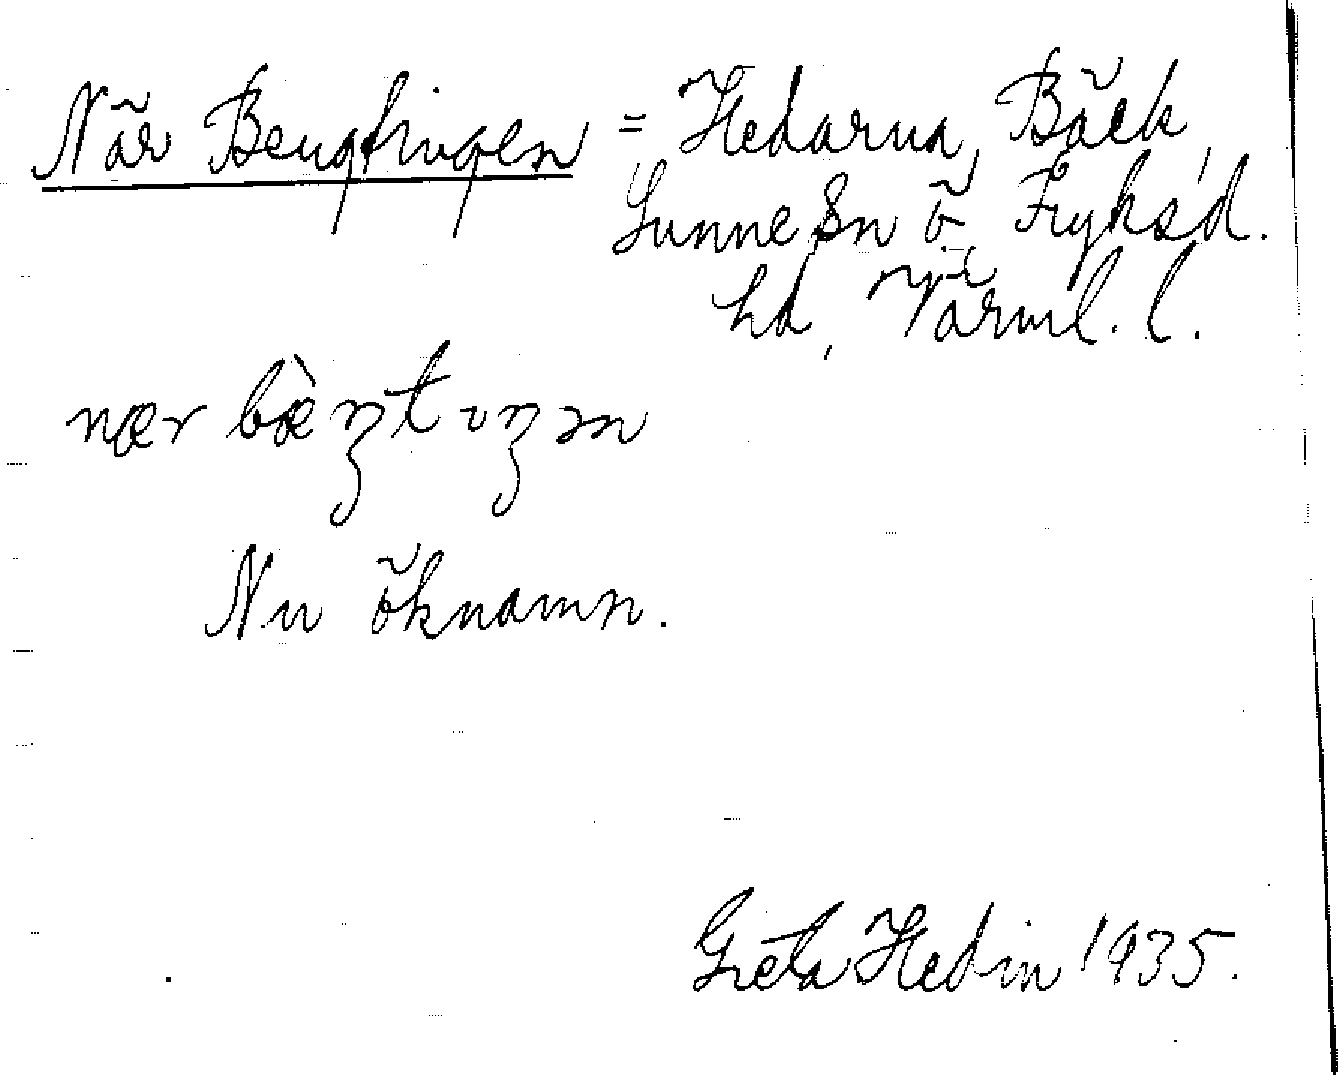 När Bengtingen = Hedarna, Bäck,
Sunne sn Ö. Fryksd.
hd, Värml. l.
nær bæ̀ŋtıŋən
Nu öknamn.
Greta Hedin 1935.